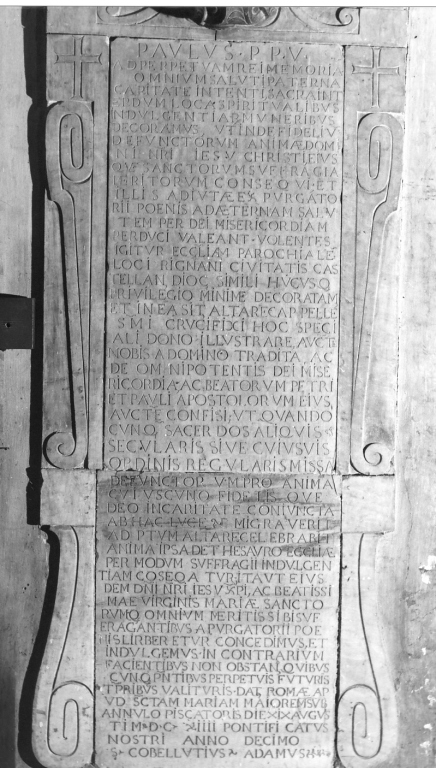 PAVLVS · P · P · V ·
AD PERPETVAM REI MEMORIA
OMNIVM SALVTI PATERNA
CARITATE INTENTI SACRA INT
ERDVM LOCA SPIRITVALIBVS
INDVLGENTIARMVNERIBVS
DECORAMVS VT INDE FIDELIV
DEFVNCTORVM ANIMÆ DOMI
NI NRI IESV CHRISTI EIVS
QVE SANCTORVM SVFFRAGIA
MERITORVM CONSEQVI ET
ILLIS ADIVTÆ EX PVRGATO
RII POENIS AD ÆTERNAM SALV
TEM PER DEI MISERICORDIAM
PERDVCI VALEANT · VOLENTES
IGITVR ECCLIAM PAROCHIALE
LOCI RIGNANI CIVITATIS CAS
TELLAN DIOC SIMILI HVCVSQ
PRIVILEGIO MINIME DECORATAM
ET IN EA SIT ALTARE CAPPELLE
SMI CRVCIFIXI HOC SPECI
ALI DONO ILLVSTRARE AVCT
NOBIS A DOMINO TRADITA AC
DE OMNIPOTENTIS DEI MISE
RICORDIA · AC BEATORVM PETRI
ET PAVLI APOSTOLORVM EIVS
AVCTE CONFISI · VT · QVANDO
CVNQ SACERDOS ALIQVIS
SECVLARIS SIVE CVIVSVIS
ORDINIS REGVLARIS MISSA
DEFVNCTORVM PRO ANIMA
CVIVSCVNQ FIDELIS · QVE
DEO IN CARITATE CONIVNCTA
AB HAC LVCE MIGRAVERIT
AD PTVM ALTARE CELEBRABIT
ANIMA IPSA DE THESAVRO ECCLIÆ
PER MODVM SVFFRAGII INDVLGEN
TIAM COSEQATVR ITA VT EIVS
DEM DNI NRI IESV XPI, AC BEATISSI
MAE VIRGINIS MARIÆ SANCTO
RVMQ OMNIVM MERITIS SIBI SVF
FRAGANTIBVS A PVRGATORII POE
NIS LIBERETVR CONCEDIMVS, ET
INDVLGEMVS · IN CONTRARIVM
FACIENTIBVS NON OBSTAN QVIBVS
CVNQ PNTIBVS PERPETVIS FVTVRIS
TPRIBVS VALITVRIS · DAT, ROMÆ AP
VD SCTAM MARIAM MAIOREM SVB
ANNVLO PISCATORIS DIE XIX AVGVS
TI M · D · C · XIIII PONTIFICATVS
NOSTRI ANNO DECIMO
S · COBELLVTIVS ADAMVS